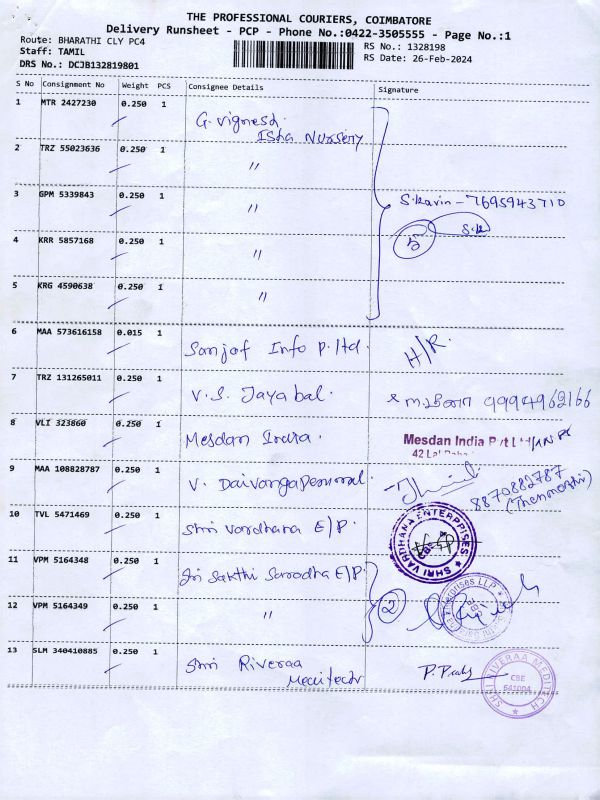 THE PROFESSIONAL COURIERS, COIMBATORE
Delivery Runsheet - PCP - Phone No.:0422-3505555 - Page No.:1
Route: BHARATHI CLY PC4
Staff: TAMIL
DRS No.: DCJB132819801
RS No.: 1328198
RS Date: 26-Feb-2024
S No Consignment No Weight PCS Consignee Details Signature
1 MTR 2427230 0.250 1 G. Vignesh
Isha Nursery
2 TRZ 55023636 0.250 1 "
3 GPM 5339843 0.250 1 " S.Kavin - 7695943710
4 KRR 5857168 0.250 1 " 5 S.K
5 KRG 4590638 0.250 1 "
6 MAA 573616158 0.015 1 Sanjof Info P. ltd. H/R.
7 TRZ 131265011 0.250 1 V. S. Jayabal. 9994962166
8 VLI 323860 0.250 1 Mesdan India. Mesdan India Pvt Ltd
42 Lal
9 MAA 108828787 0.250 1 V. Daivangaperumal. 8870882787
(Thenmozhi)
10 TVL 5471469 0.250 1 Shri Vardhana E/P. SHRI VARDHANA ENTERPRISES CBE
11 VPM 5164348 0.250 1 Sri Sakthi Sarodha E/P
12 VPM 5164349 0.250 1 " 2
13 SLM 340410885 0.250 1 Shri Riveraa
Meditech
SHRI RIVERAA MEDITECH CBE 641004